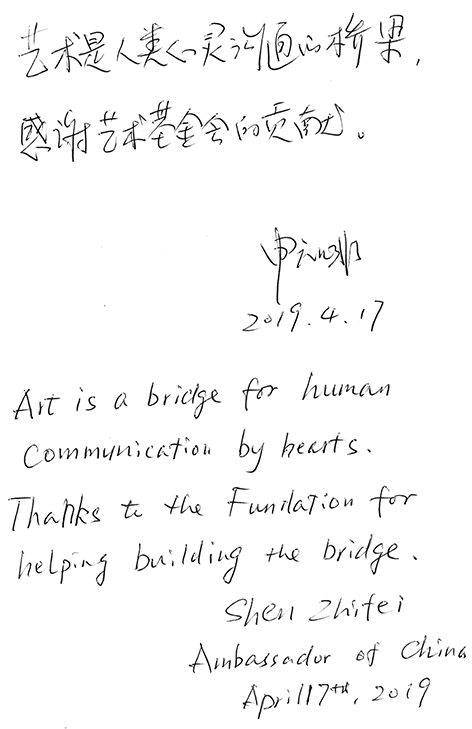 艺术是人类心灵沟通的桥梁，
感谢艺术基金会的贡献。
申知非
2019.4.17
Art is a bridge for human
communication by hearts.
Thanks to the Fundation for
helping building the bridge.
Shen Zhifei
Ambassador of China
April 17th, 2019